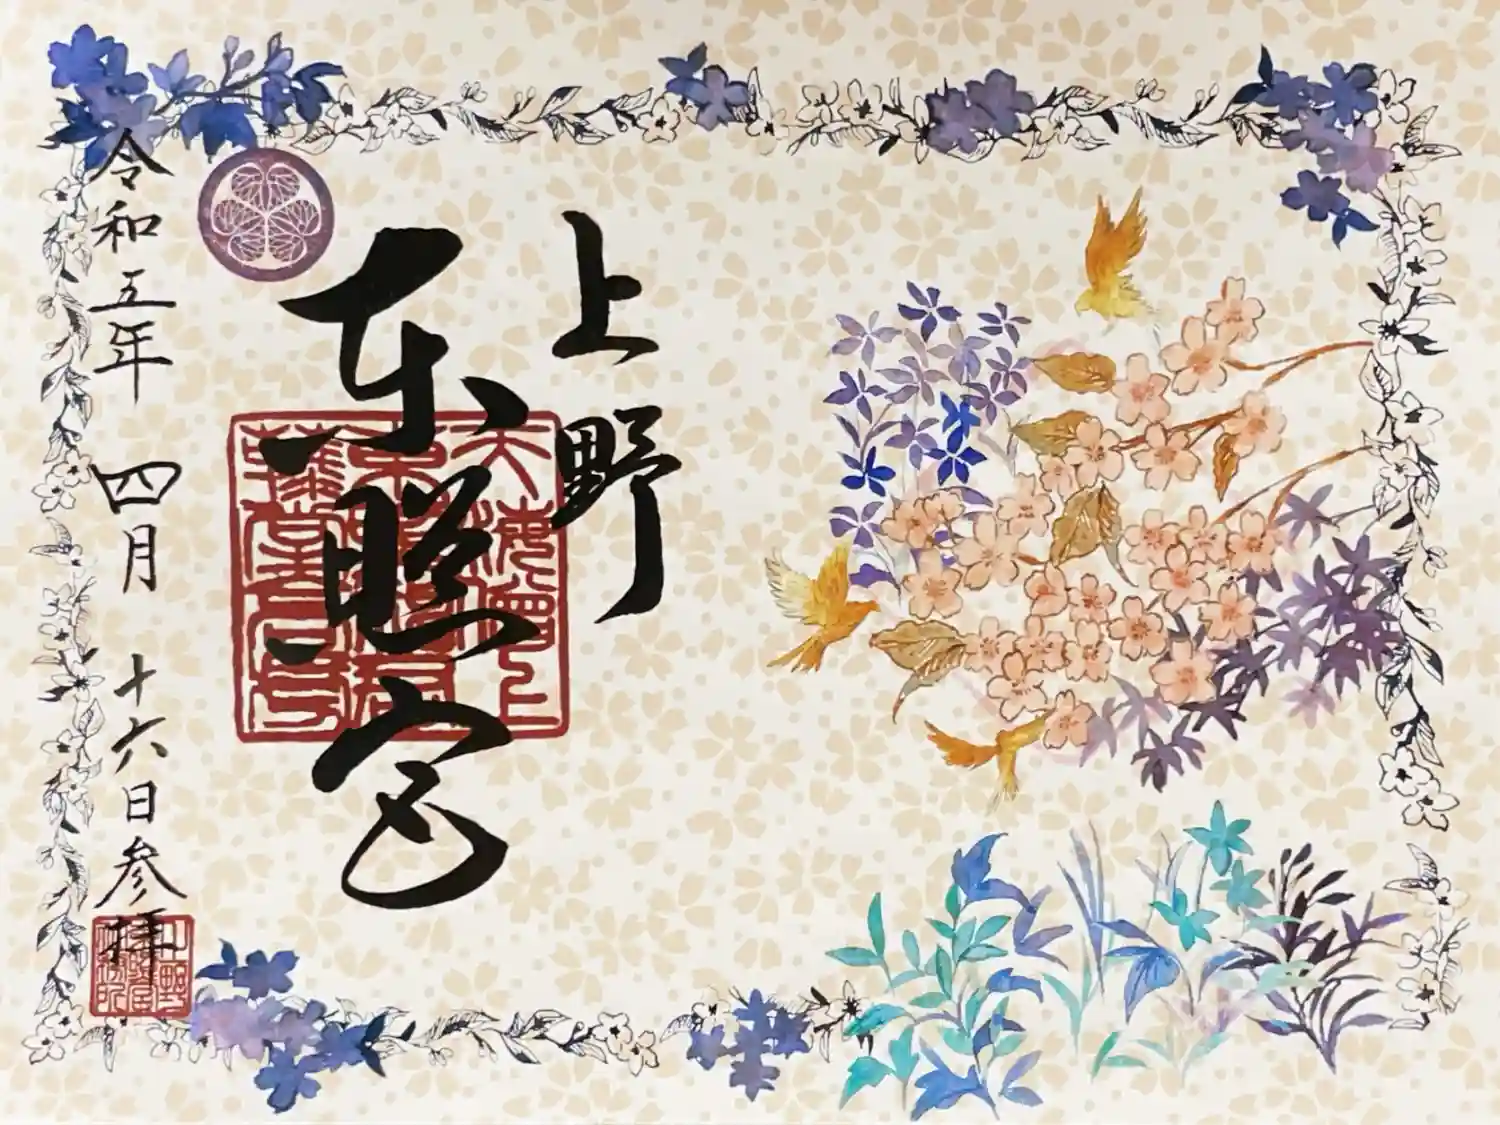 上野
東照宮
令和五年 四月 十六日 参拝